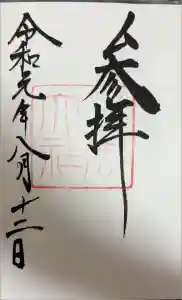 参拝
令和元年八月十二日